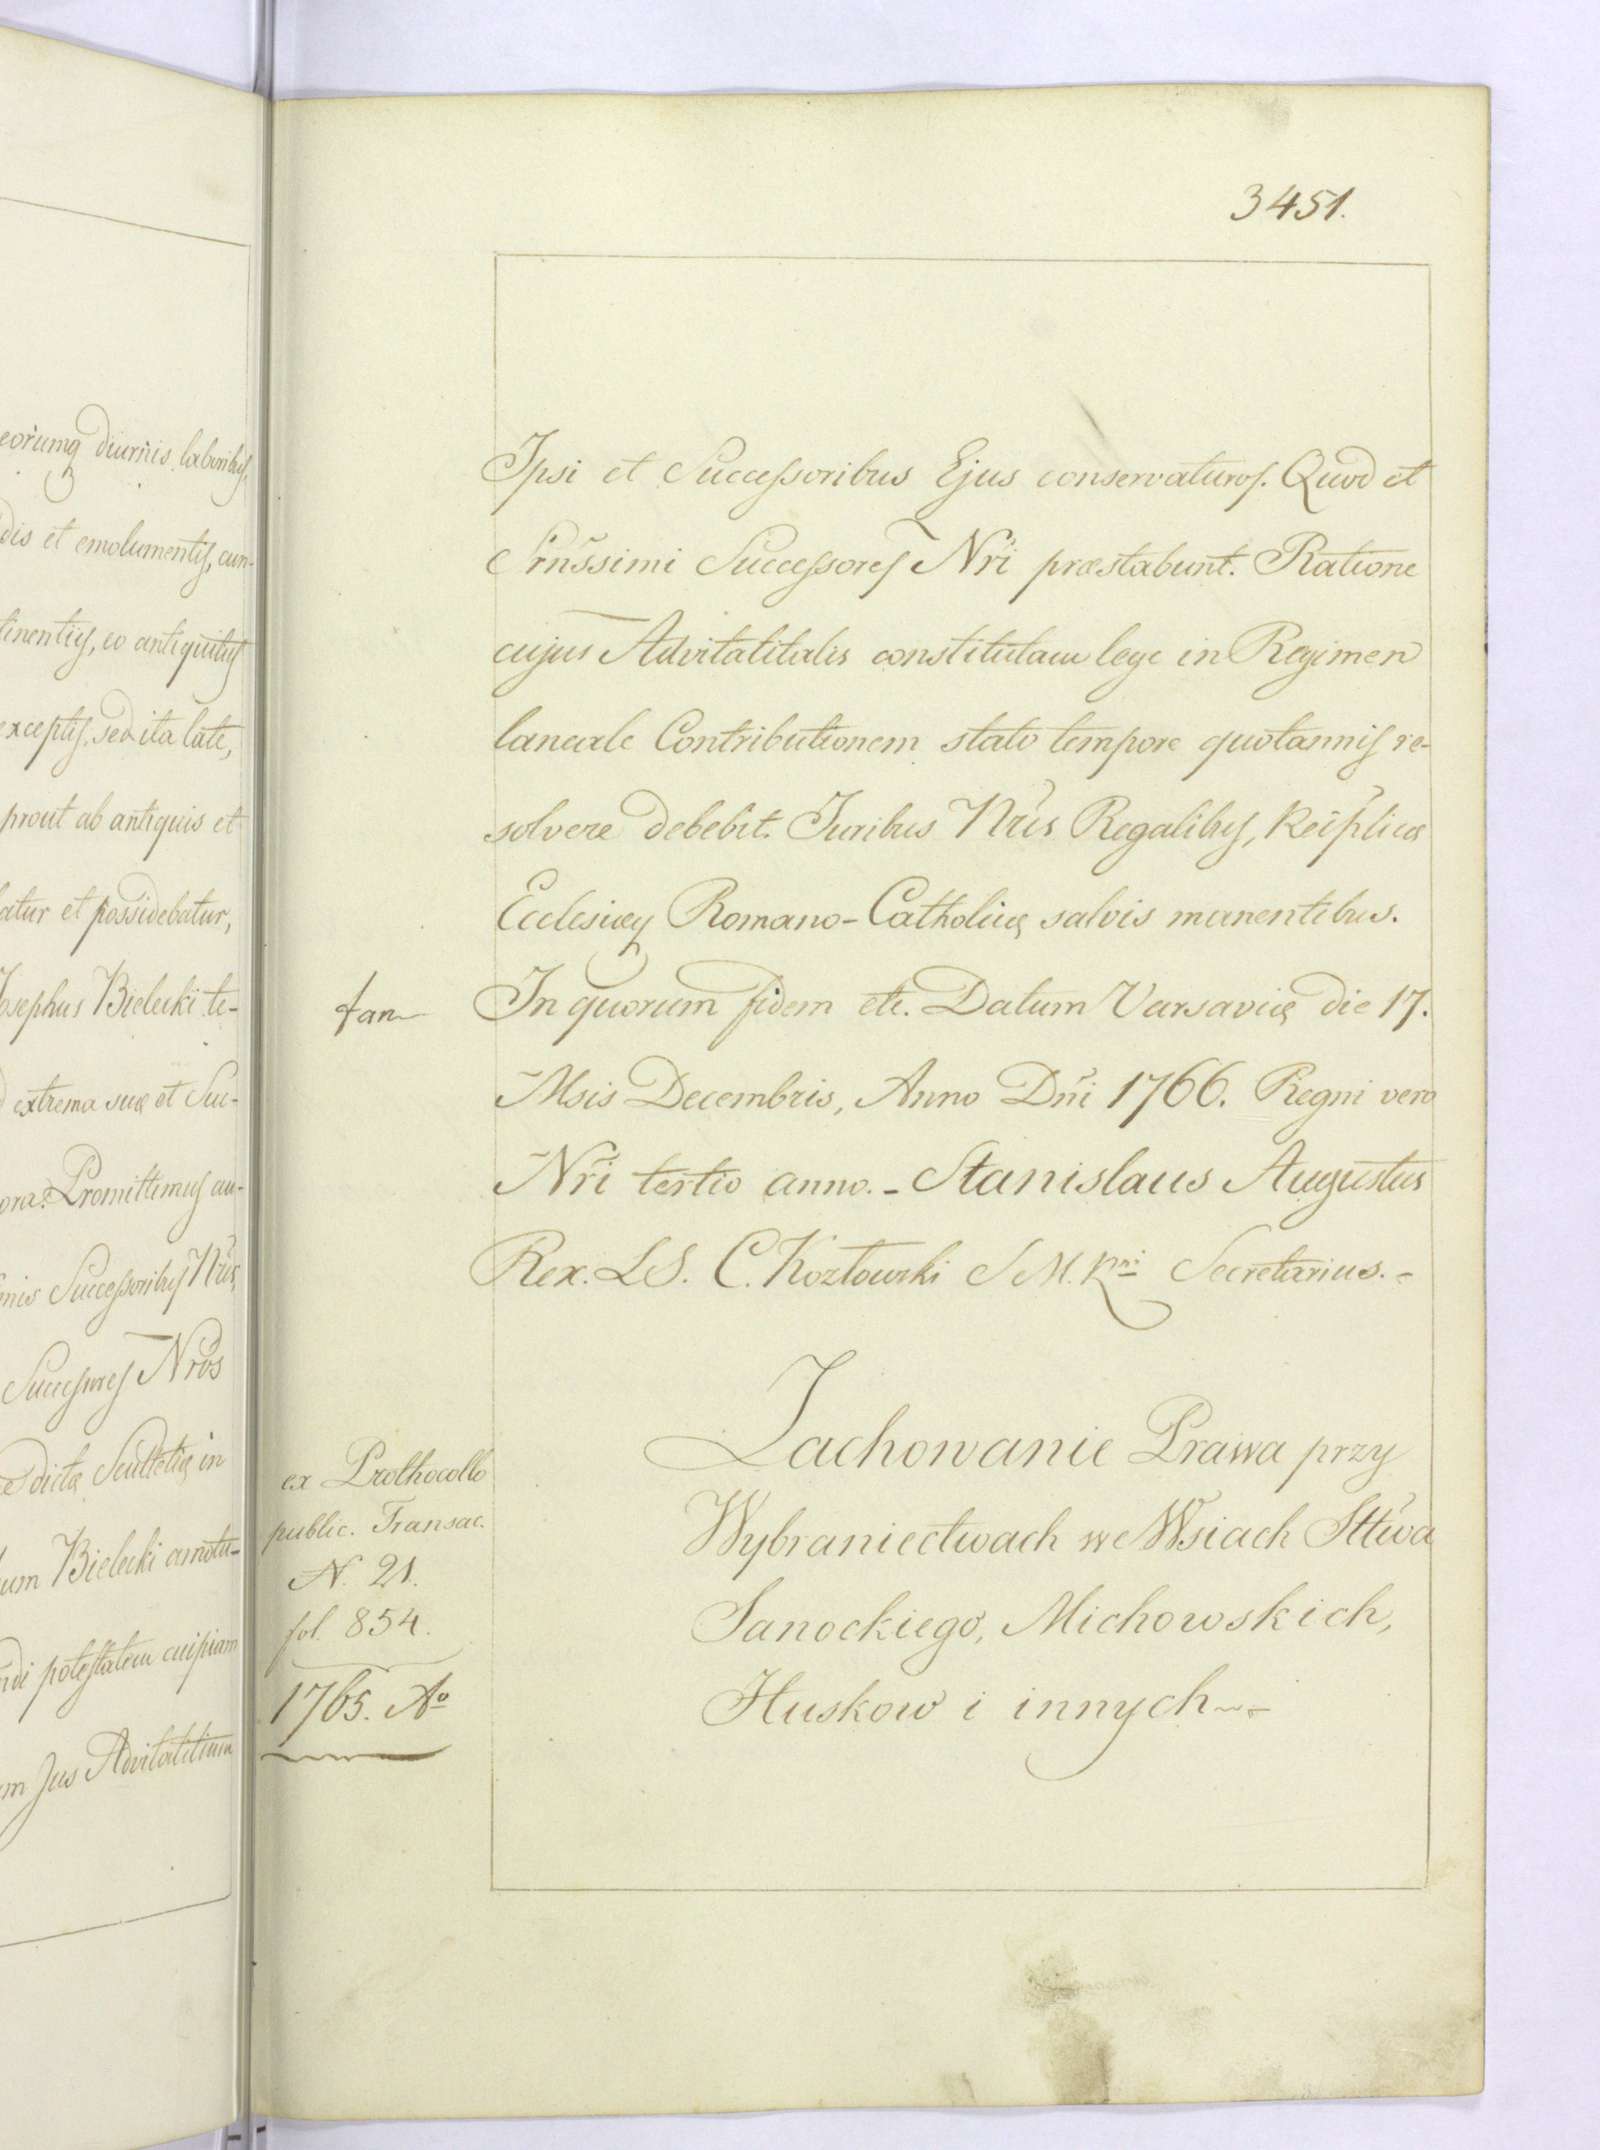 eorumq diurnis laboribus,
dis et emolumentis, cun-
tinentiis, eo antiquitus
exceptis, sed ita late,
prout ab antiquis et
batur et possidebatur,
Josephus Bielecki te-
extrema suæ et Suc-
Promittimus au-
Successoribus Nris,
Successores Nros
dictæ Scultetiæ in
um Bielecki amotu-
ndi potestatem cuipiam
m Jus Advitalitium
3451.
Ipsi et Successoribus Ejus conservaturos. Quod et
Srnssimi Successores Nri præstabunt. Ratione
cujus Advitalitalis constitutam lege in Regimen
laneale Contributionem stato tempore quotannis re-
solvere debebit. Juribus Nris Regalibus, Reiplicæ
Ecclesiæq Romano-Catholicæ salvis manentibus.
In quorum fidem etc. Datum Varsaviæ die 17.
Msis Decembris, Anno Dni 1766. Regni vero
Nri tertio anno. - Stanislaus Augustus
Rex. LS. C. Kozłowski S M. Rni Secretarius. -
Zachowanie Prawa przy
Wybraniectwach we Wsiach Sttwa
Sanockiego, Michowskich,
Huskow i innych -
ex Prothocollo
public. Transac.
N. 21.
fol. 854.
1765. Ao